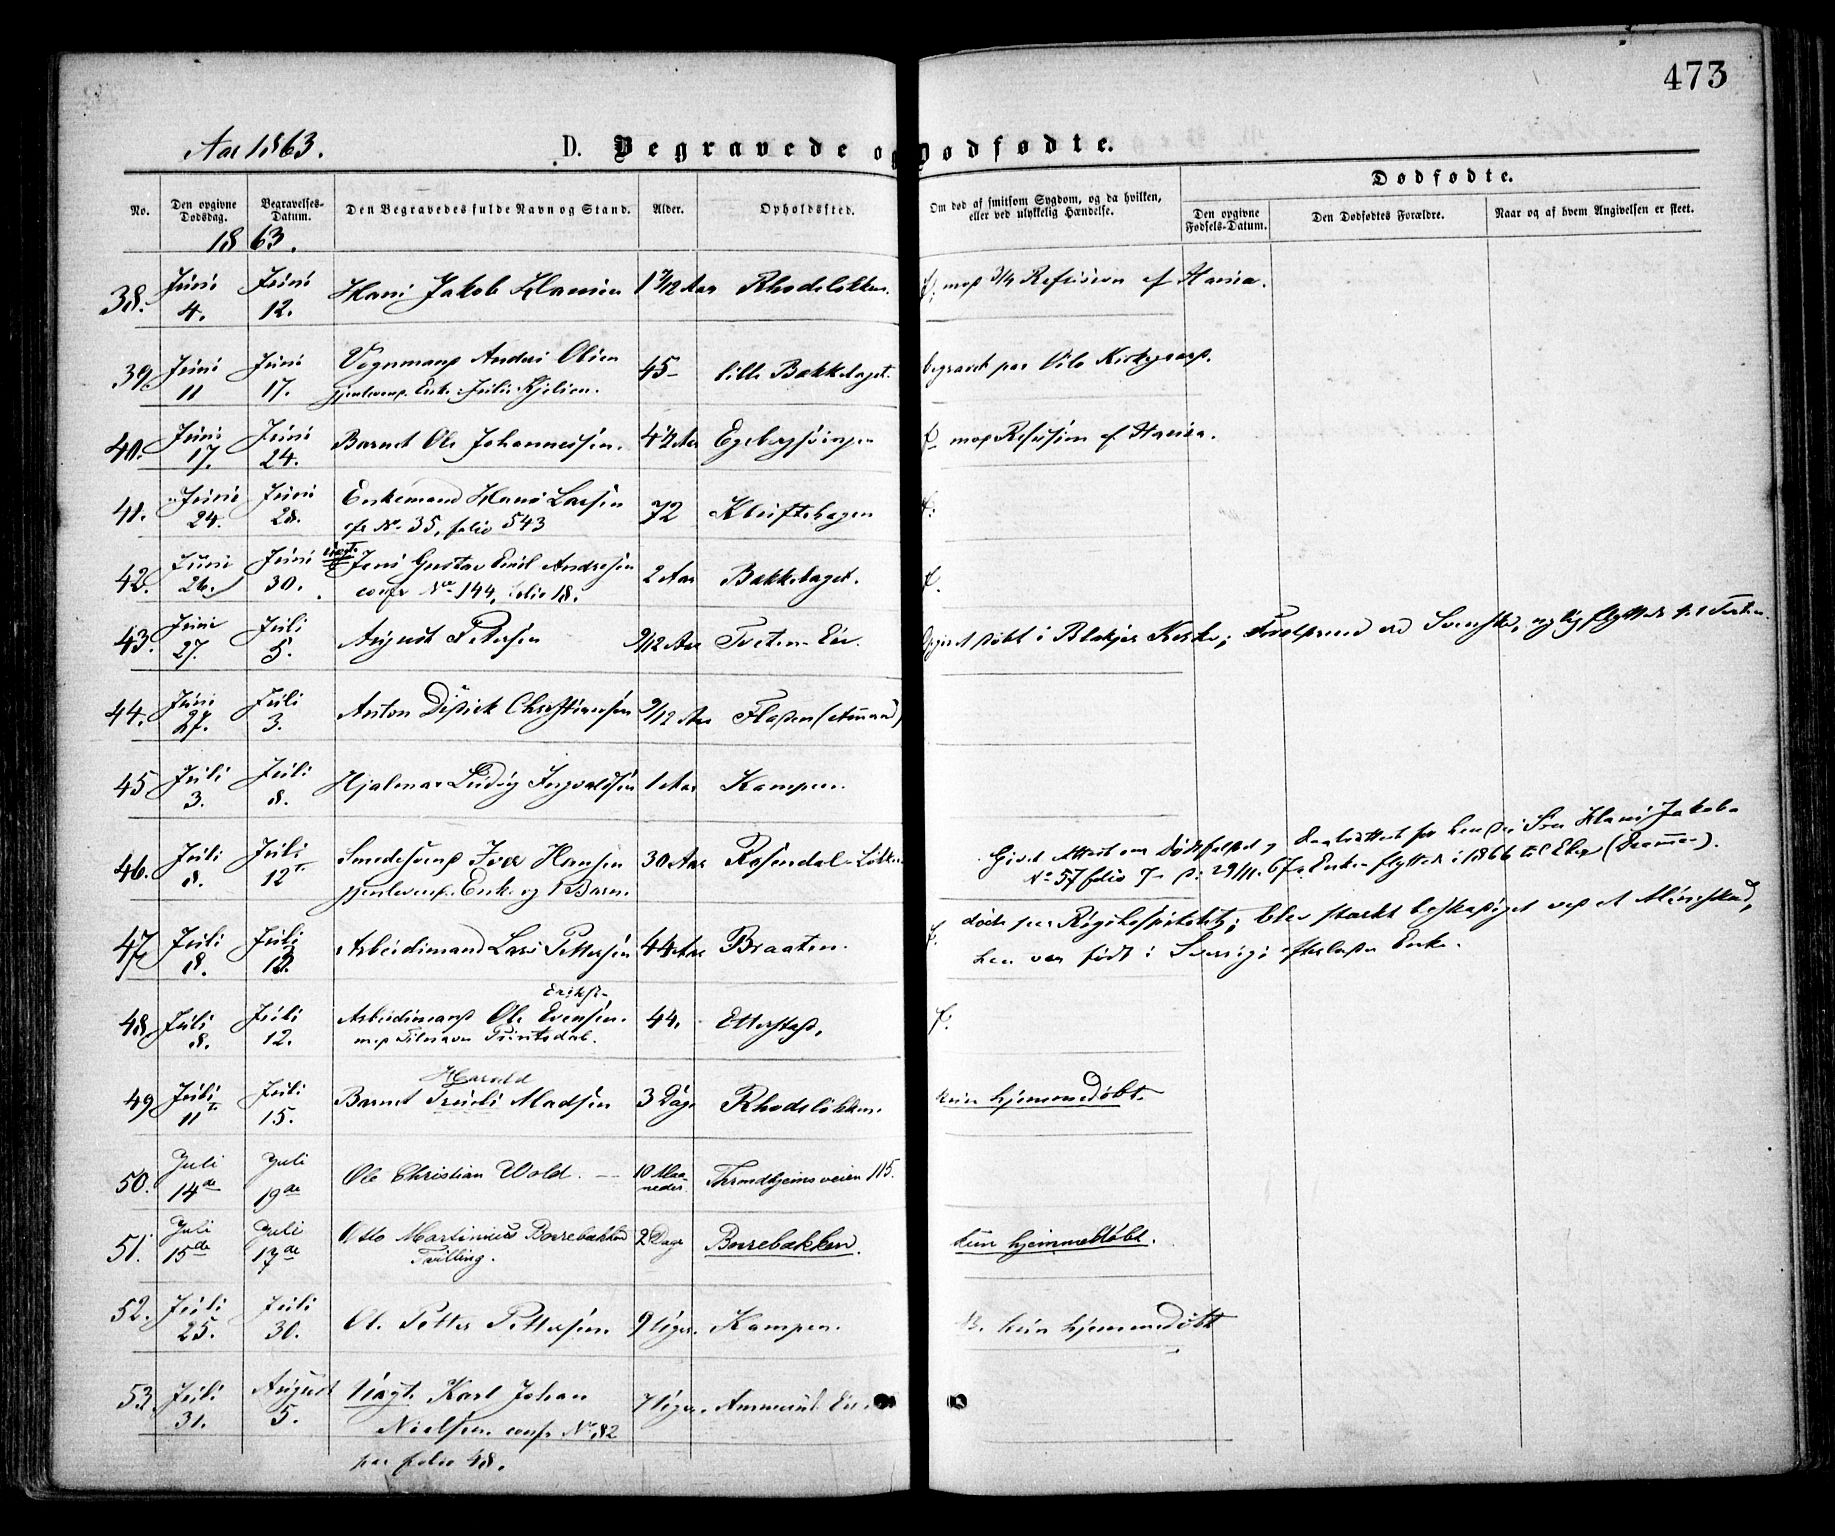 473
Aar 1863.
D. Begravede og Dødfødte.
No.
Den opgivne Dødsdag.
Begravelses-Datum.
Den Begravedes fulde Navn og Stand.
Alder.
Opholdssted.
Om død af smitsom Sygdom, og da hvilken, eller ved ulykkelig Hændelse.
Dødfødte.
Den opgivne Fødsels-Datum.
Den Dødfødtes Forældre.
Naar og af hvem Angivelsen er skeet.
1863.
38. Juni 4. Juni 12. Hans Jakob 1 Aar Rhodeløkken.
39. Juni 11 Juni 17. Vognmand Anders Olsen 45 lille Bakkehaget. begravet paa Oslo Kirkegaard.
gjenlevend. Enke Julie
40. Juni 17. Juni 24. Barnet Ole Johannessen. Egebergsvingen
41. Juni 24. Juni 28. Enkemand Hans Larsen 72 Kliftehagen
cfr No 35, folio 543
42. Juni 26. Juni 30. uægte Jens Gustav Emil Andresen 2 Aar Bakkehaget.
confr No 144, folio 18.
43. Juni 27. Juli 5. August Petersen 9/12 Aar Tveten Eie. døbt i Blakjer Kirke; Svenske, nylig flyttede til Tveten.
44. Juni 27. Juli 3. Anton Didrik Christiansen 9/12 Aar Fladen (Ammerud)
45 Juli 3. Juli 8. Hjalmar Ludvig Ingvaldsen 1 Aar Kampen.
46. Juli 8. Juli 12te Smedesvend Iver Hansen 30 Aar Rosendal-Løkken Givet Attest om Dødsfaldet og Daabsattest for Søn Hans Jakob
gjenlevend. Enke og 1 Barn. No 57 folio 7 d: 29/11 67. Enken flyttede i 1866 til Eker (Drammen).
47. Juli 8. Juli 12. Arbeidsmand Lars Pettersen 44 Aar Braaten. døde paa Rigshospitalet; blev stærkt beskadiget ved et Mineskud,
han var født i Sverrig; efterlader Enke.
48. Juli 8. Juli 12. Arbeidsmand Ole Evensen. 44. Etterstad,
med Tilnavn
49 Juli 11te Juli 15. Barnet Truls Madsen 3 Dage Rhodeløkken. kun hjemmedøbt.
Harald
50. Juli 14de Juli 19de Ole Christian Wold. 10 Maaneder. Throndhjemsveien 115.
51. Juli 15de Juli 17de Otto Martinius Borrebakken 2 Dage Borrebakken. kun hjemmedøbt.
Tvilling.
52. Juli 25. Juli 30. Ole Petter Pettersen 9 Uger. Kampen. kun hjemmedøbt
53. Juli 31. August 5. Uægt. Karl Johan 7 Uger. Ammerud Eie.
Nielsen. confr No 82
paa folio 48.